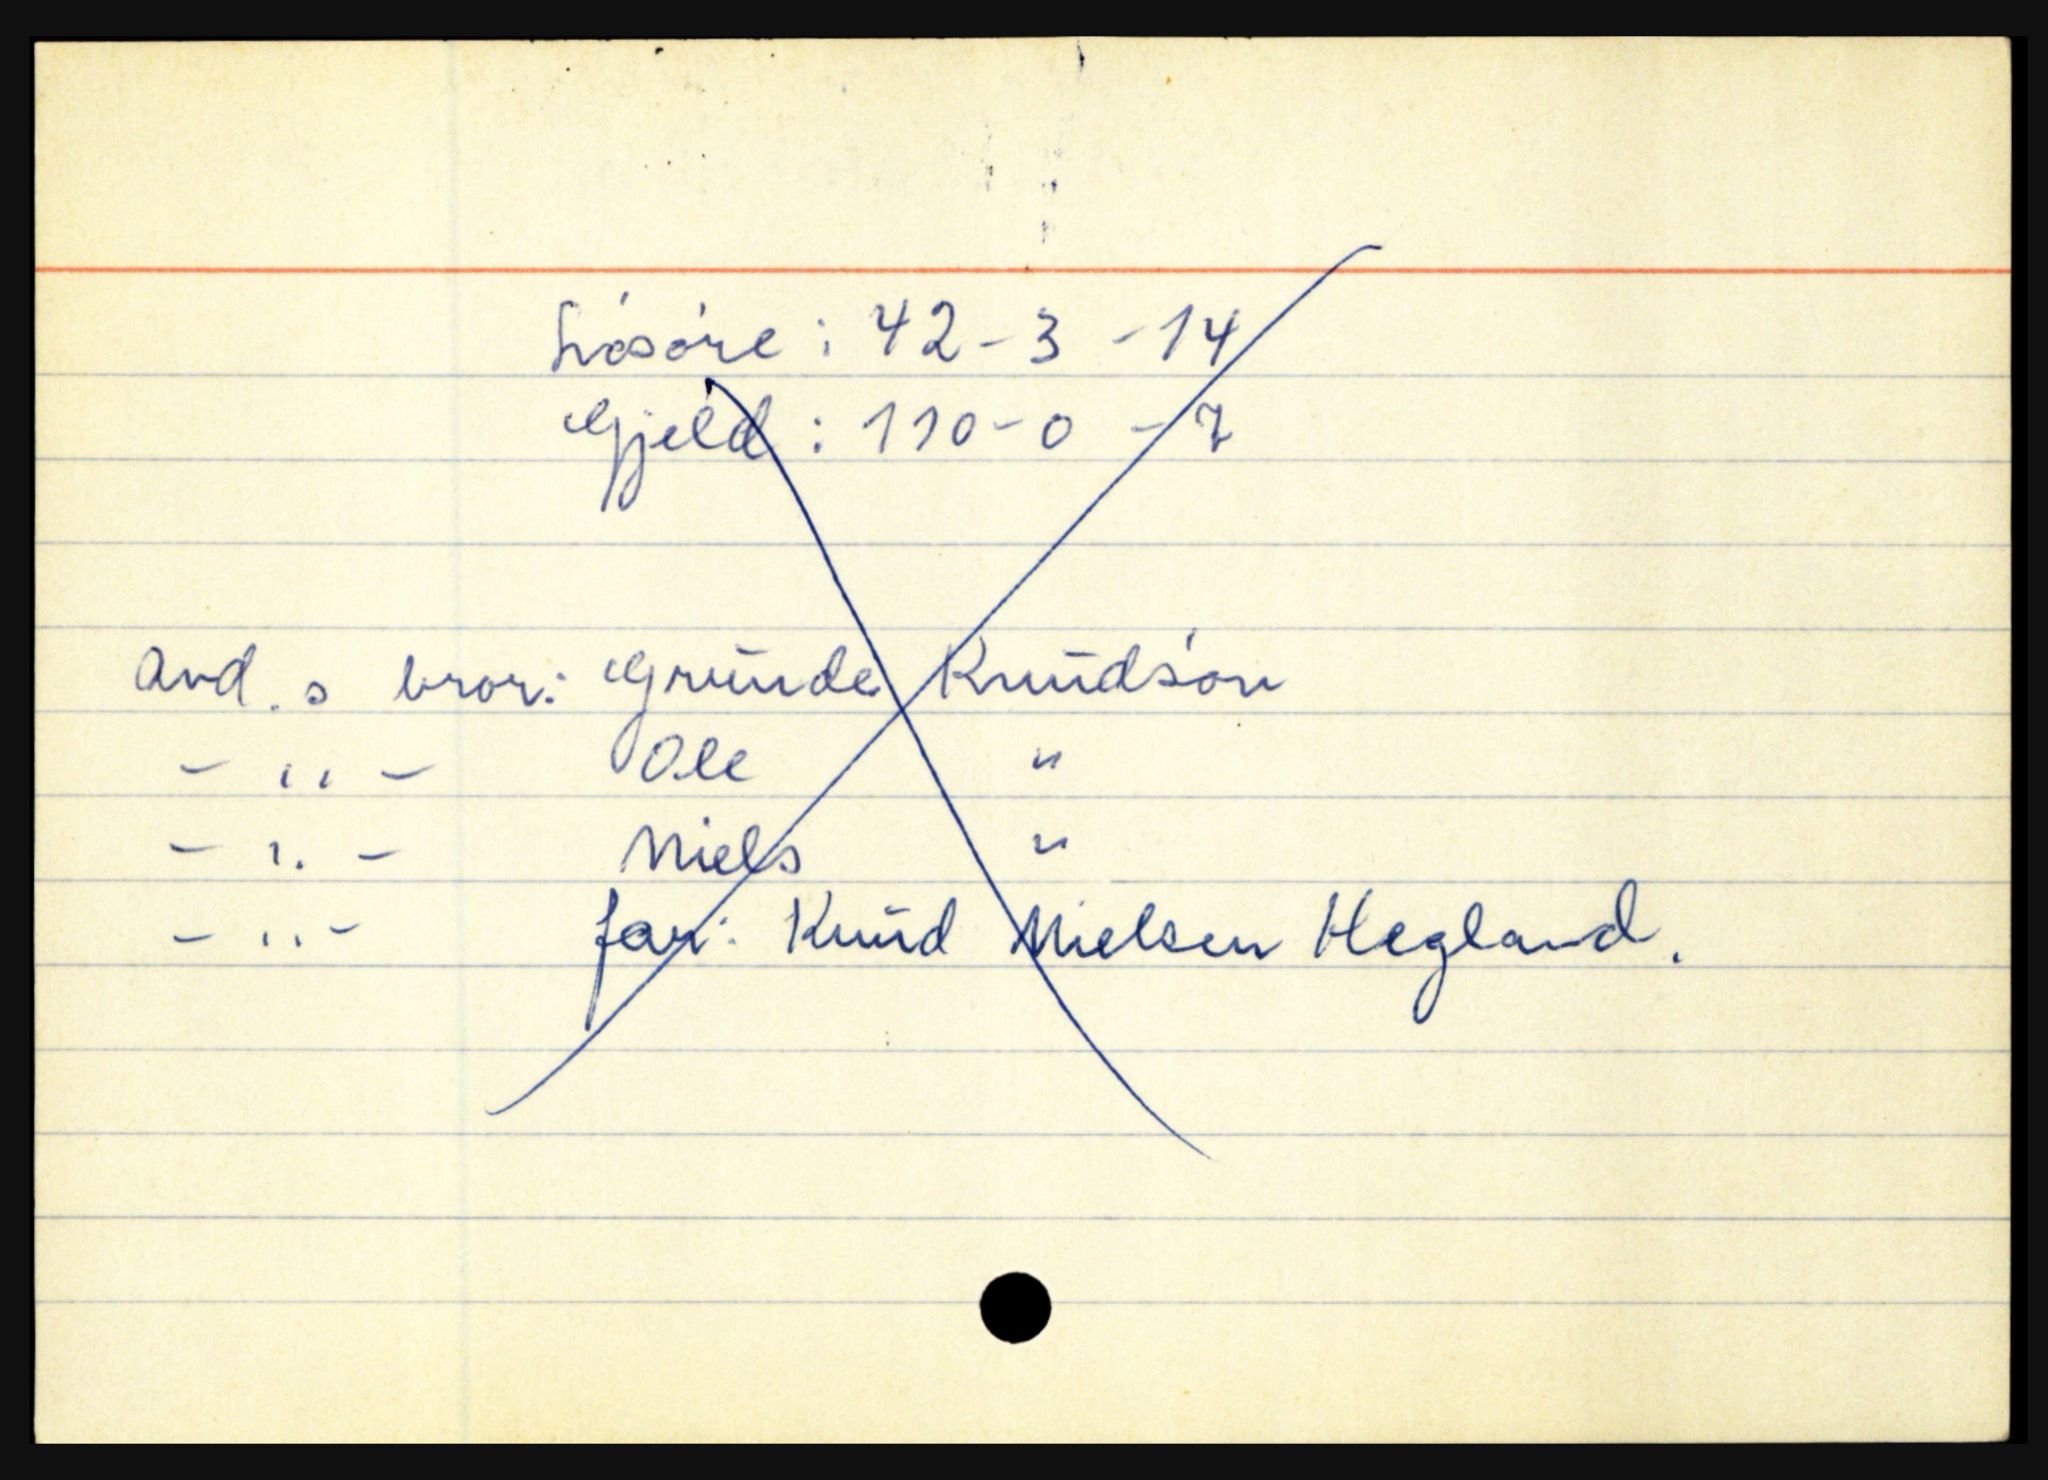 Løsøre : 42 - 3 - 14
Gjeld : 110 - 0 - 7
Avd. s bror: Grunde Knudsøn
- ,, - Ole "
- ,, - Niels "
- ,, - far: Knud Nielsen Hegland.